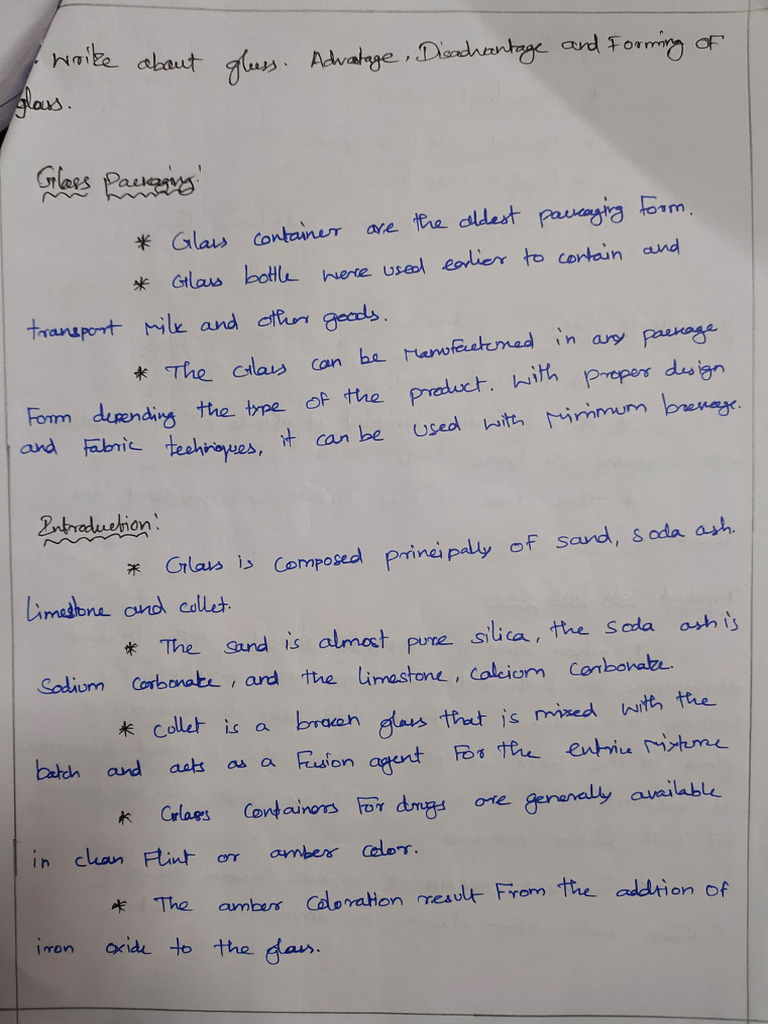 . Write about glass. Advatage, Disadvantage and Forming OF
glass.
Glass Packaging:
* Glass container are the oldest packaging form.
* Glass bottle were used earlier to contain and
transport Milk and other goods.
* The Glass can be Manufactured in any package
Form depending the type of the product. With proper design
and Fabric techniques, it can be used with Minimum breakage.
Introduction:
* Glass is composed principally of sand, soda ash.
limestone and collet.
* The sand is almost pure silica, the soda ash is
Sodium carbonate, and the limestone, calcium carbonate.
* collet is a broken glass that is mixed with the
batch and acts as a Fusion agent For the entrie Mixture
* Glass Containers For drugs are generally available
in clean Flint or amber color.
* The amber Coloration result From the addtion of
iron oxide to the glass.